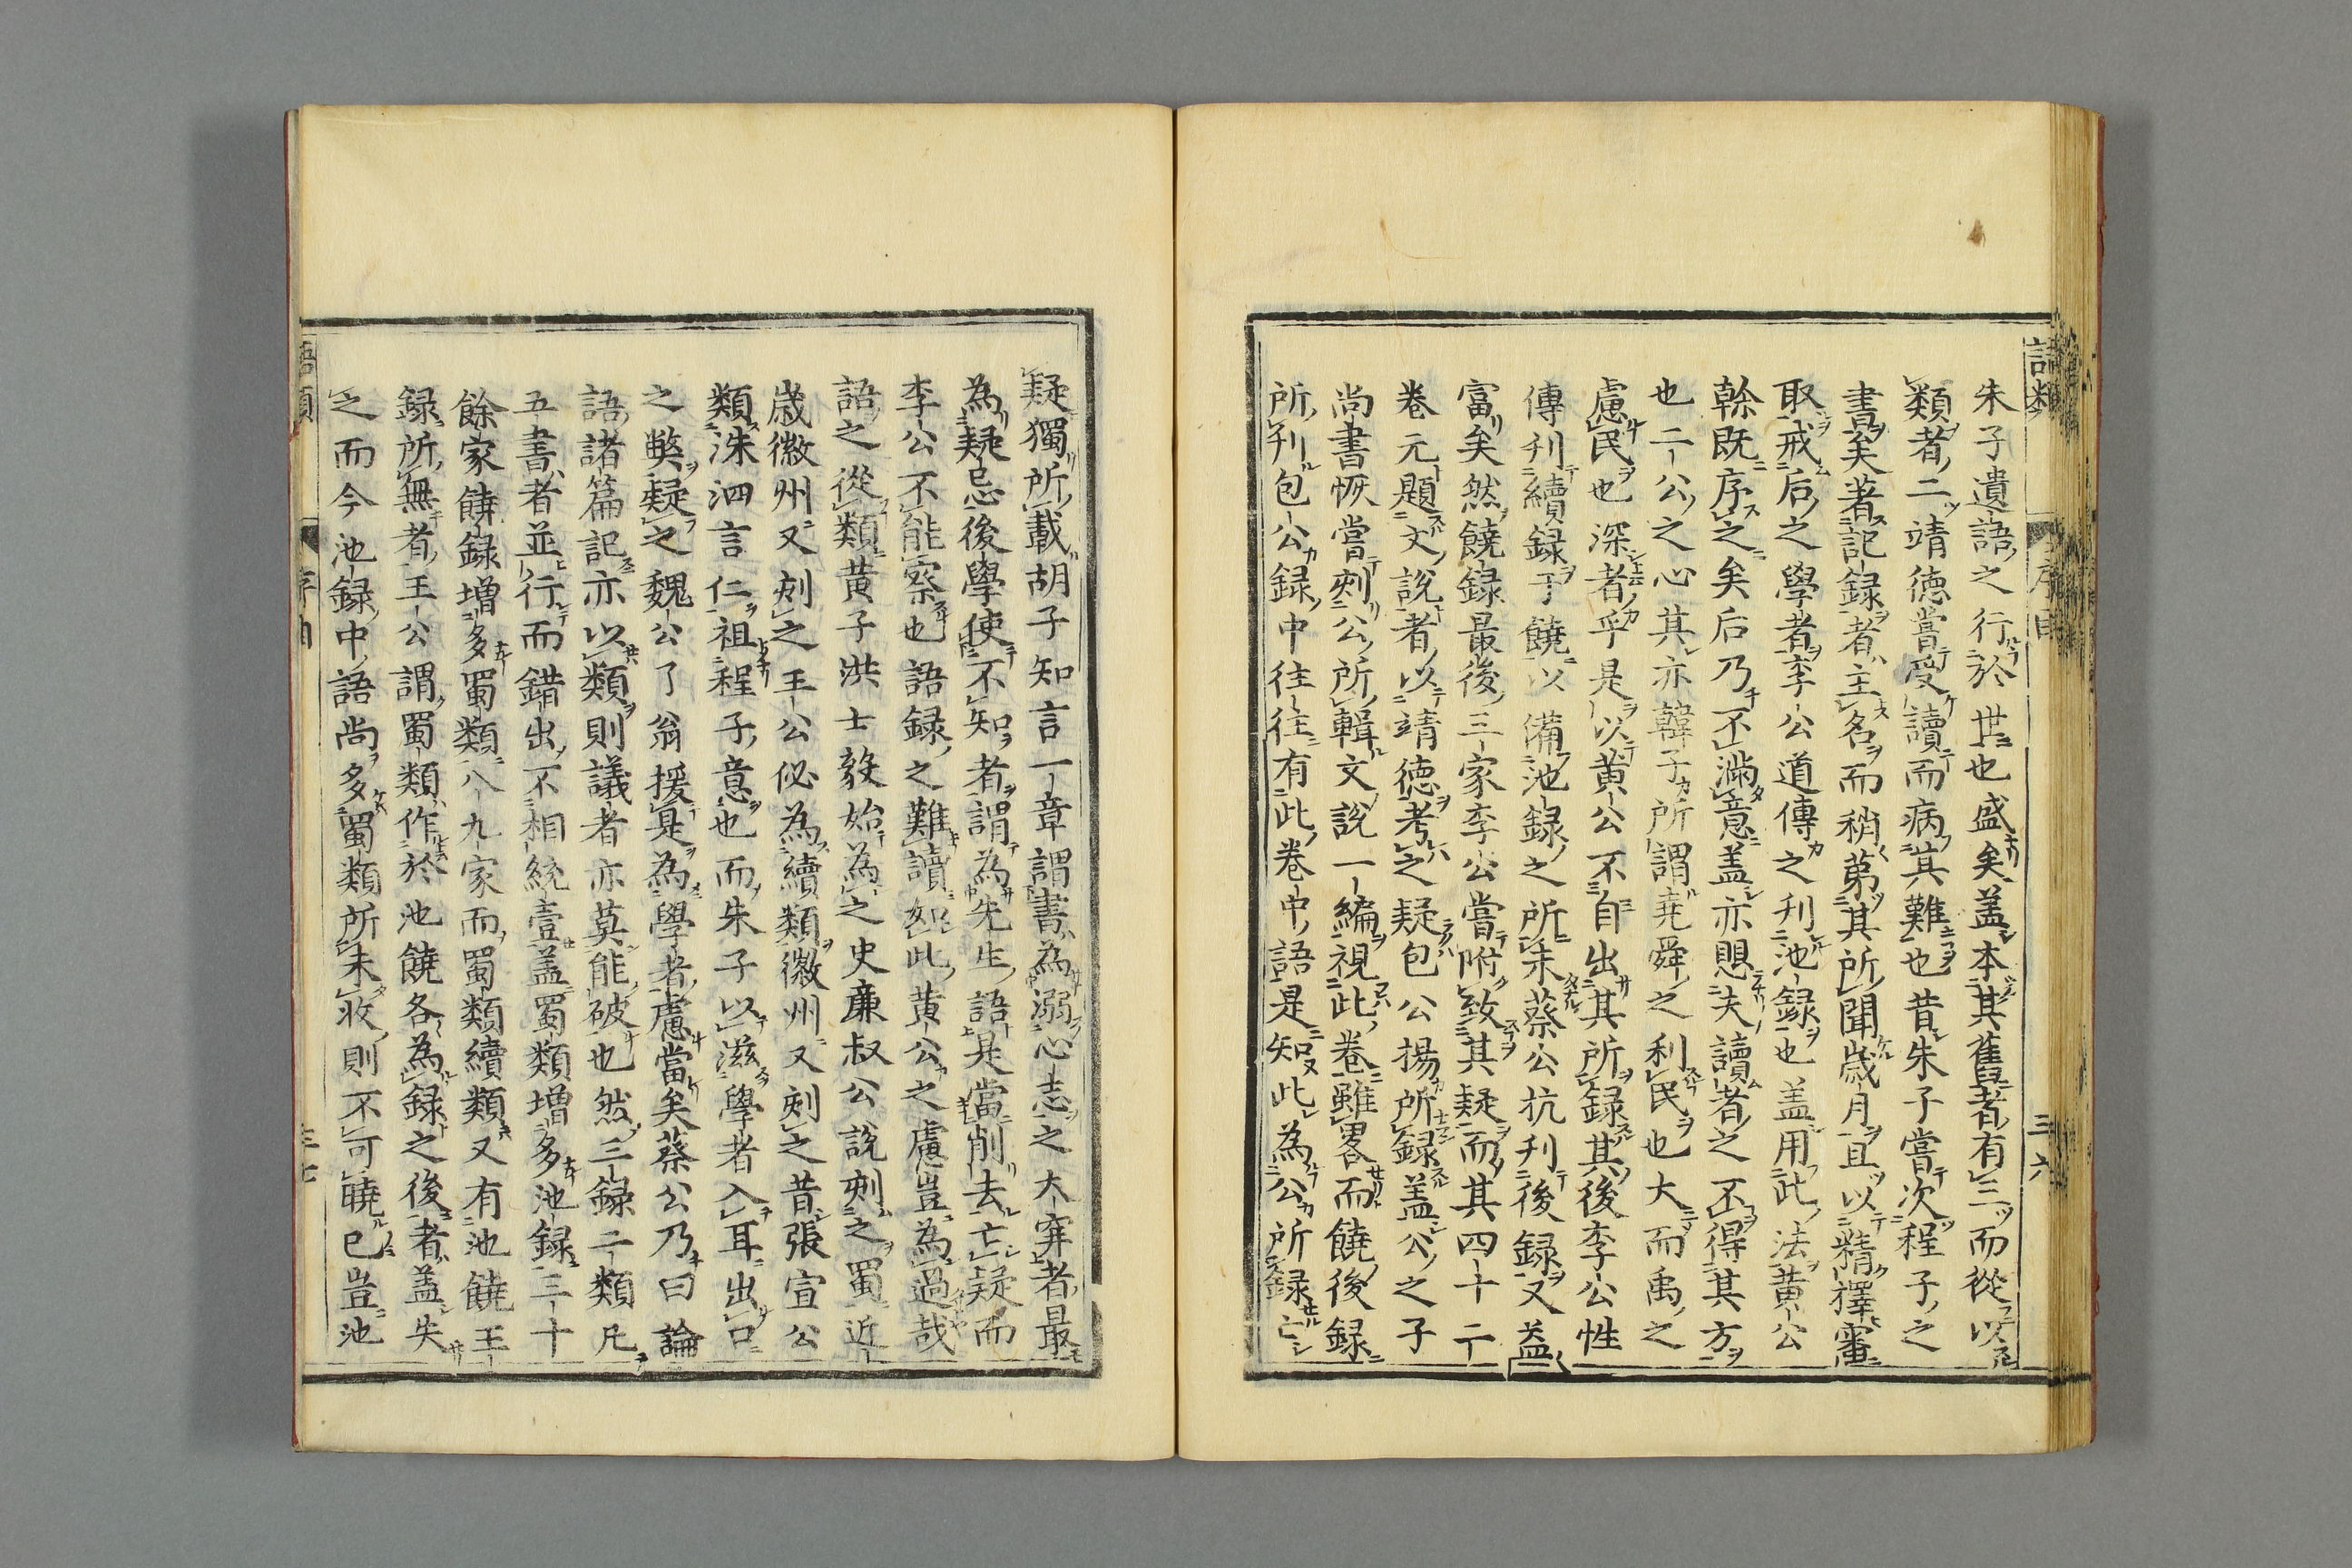 語類
序目
三六
朱子遺語之行於世也盛矣盖本其舊者有三而從以
類者二靖德嘗受讀而病其難也昔朱子嘗次程子之
書矣著記録者主名而稍苐其所聞歳月且以精擇審
取戒后之學者李公道傳之刋池録也盖用此法黄公
榦既序之矣后乃不滿意盖亦思夫讀者之不得其方
也二公之心其亦韓子所謂尭舜之利民也大而禹之
慮民也深者乎是以黄公不自出其所録其後李公性
傳刋續録于饒以備池録之所未蔡公抗刋後録又益
富矣然饒録最後三家李公嘗附致其疑而其四十二
巻元題文說者以靖徳考之疑包公揚所録盖公之子
尚書恢嘗刻公所輯文說一編視此巻雖畧而饒後録
所刋包公録中往往有此巻中語是知此為公所録亡
疑獨所載胡子知言一章謂書為溺心志之大穽者最
為疑忌後學使不知者謂為先生語是當削去亡疑而
李公不能察也語録之難讀如此黄公之慮豈為過哉
語之從類黄子洪士毅始為之史亷叔公說刻之蜀近
歳徽州又刻之王公佖為續類徽州又刻之昔張宣公
類洙泗言仁祖程子意也而朱子以滋學者入耳出口
之弊疑之魏公了翁援是為學者慮當矣蔡公乃曰論
語諸篇記亦以類則議者亦莫能破也然三録二類凡
五書者並行而錯出不相統壹盖蜀類增多池録三十
餘家饒録增多蜀類八九家而蜀類續類又有池饒王
録所無者王公謂蜀類作於池饒各為録之後者盖失
之而今池録中語尚多蜀類所未收則不可曉已豈池